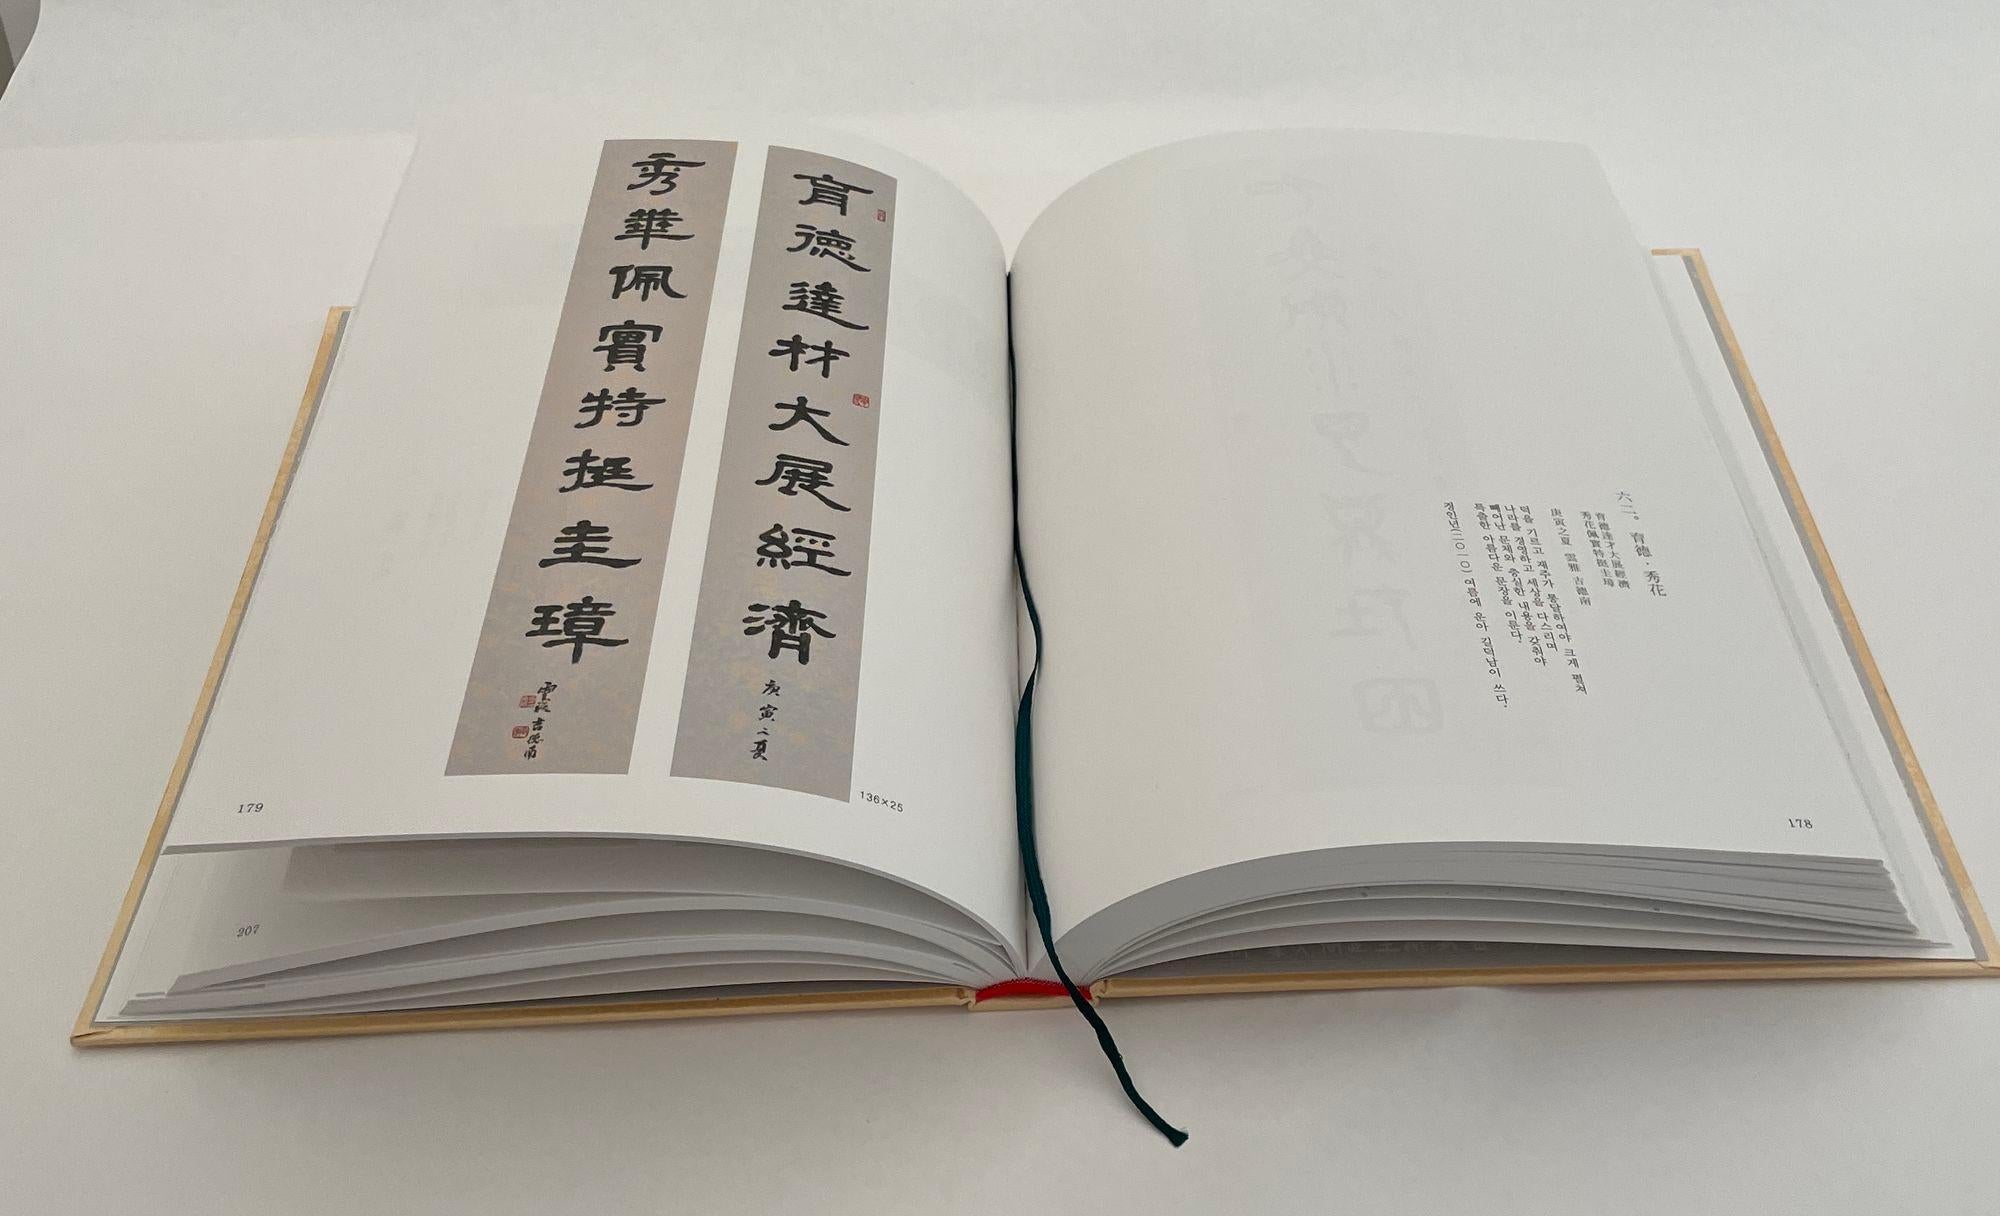 六二。育德·秀花
育德達才大展經濟
秀花佩實特挺圭璋
庚寅之夏 雲雅 吉德南
덕을 기르고 재주가 통달하여야 크게 펼쳐
나라를 경영하고 세상을 다스리며
빼어난 문체와 충실한 내용을 갖춰야
특출한 아름다운 문장을 이룬다.
경인년(二〇一〇) 여름에 운아 길덕남이 쓰다.
178
育德達材大展經濟
庚寅之夏
秀華佩實特挺圭璋
雲雅 吉德南
136×25
179
207